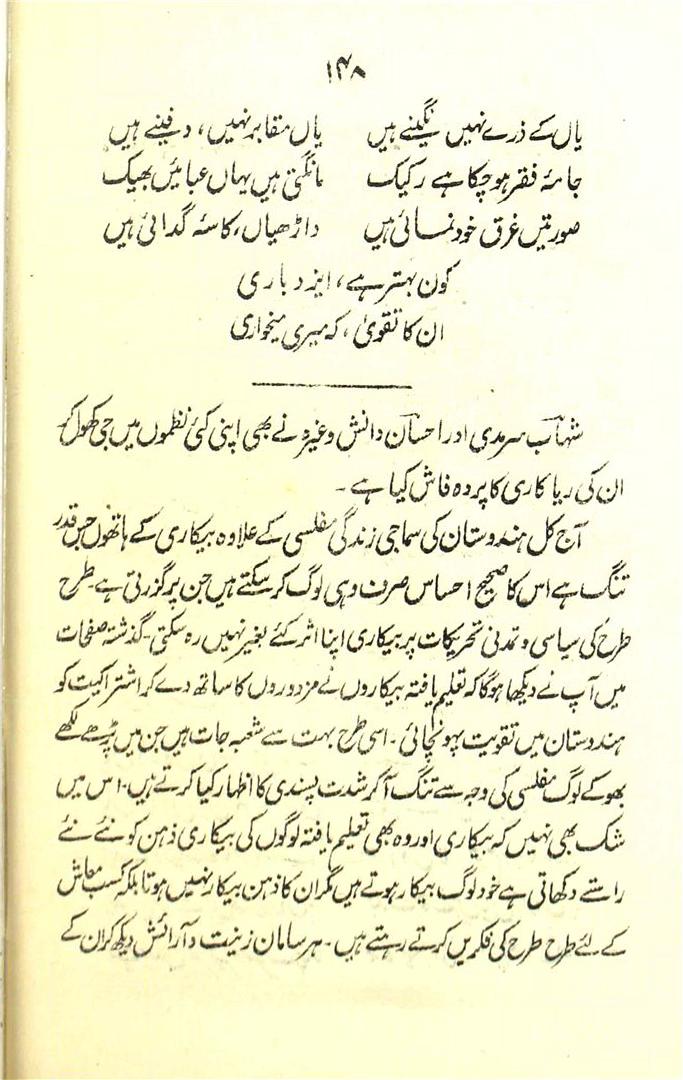 ۱۴۸
یاں کے ذرے نہیں نگینے ہیں یاں مقابر نہیں، دفینے ہیں
جامۂ فقر ہوچکا ہے رکیک مانگتی ہیں یہاں عبائیں بھیک
صورتیں غرق خودنمائی ہیں داڑھیاں، کاسۂ گدائی ہیں
کون بہتر ہے، ایزد باری
ان کا تقویٰ، کہ میری میخواری
شہاب سرمدی اور احسان دانش وغیرہ نے بھی اپنی کئی نظموں میں جی کھول کر
ان کی ریاکاری کا پردہ فاش کیا ہے۔
آج کل ہندوستان کی سماجی زندگی مفلسی کے علاوہ بیکاری کے ہاتھوں جس قدر
تنگ ہے اس کا صحیح احساس صرف وہی لوگ کرسکتے ہیں جن پر گزرتی ہے۔ طرح
طرح کی سیاسی و تمدنی تحریکات پر بیکاری اپنا اثر کئے بغیر نہیں رہ سکتی۔ گذشتہ صفحات
میں آپ نے دیکھا ہوگا کہ تعلیم یافتہ بیکاروں نے مزدوروں کا ساتھ دے کر اشتراکیت کو
ہندوستان میں تقویت پہونچائی۔ اسی طرح بہت سے شعبہ جات ہیں جن میں پڑھے لکھے
بھوکے لوگ مفلسی کی وجہ سے تنگ آکر شدت پسندی کا اظہار کیا کرتے ہیں۔ اس میں
شک بھی نہیں کہ بیکاری اور وہ بھی تعلیم یافتہ لوگوں کی بیکاری ذہن کو نئے نئے
راستے دکھاتی ہے خود لوگ بیکار ہوتے ہیں مگر ان کا ذہن بیکار نہیں ہوتا بلکہ کسب معاش
کے لئے طرح طرح کی فکریں کرتے رہتے ہیں۔ ہر سامان زینت و آرائش دیکھ کر ان کے